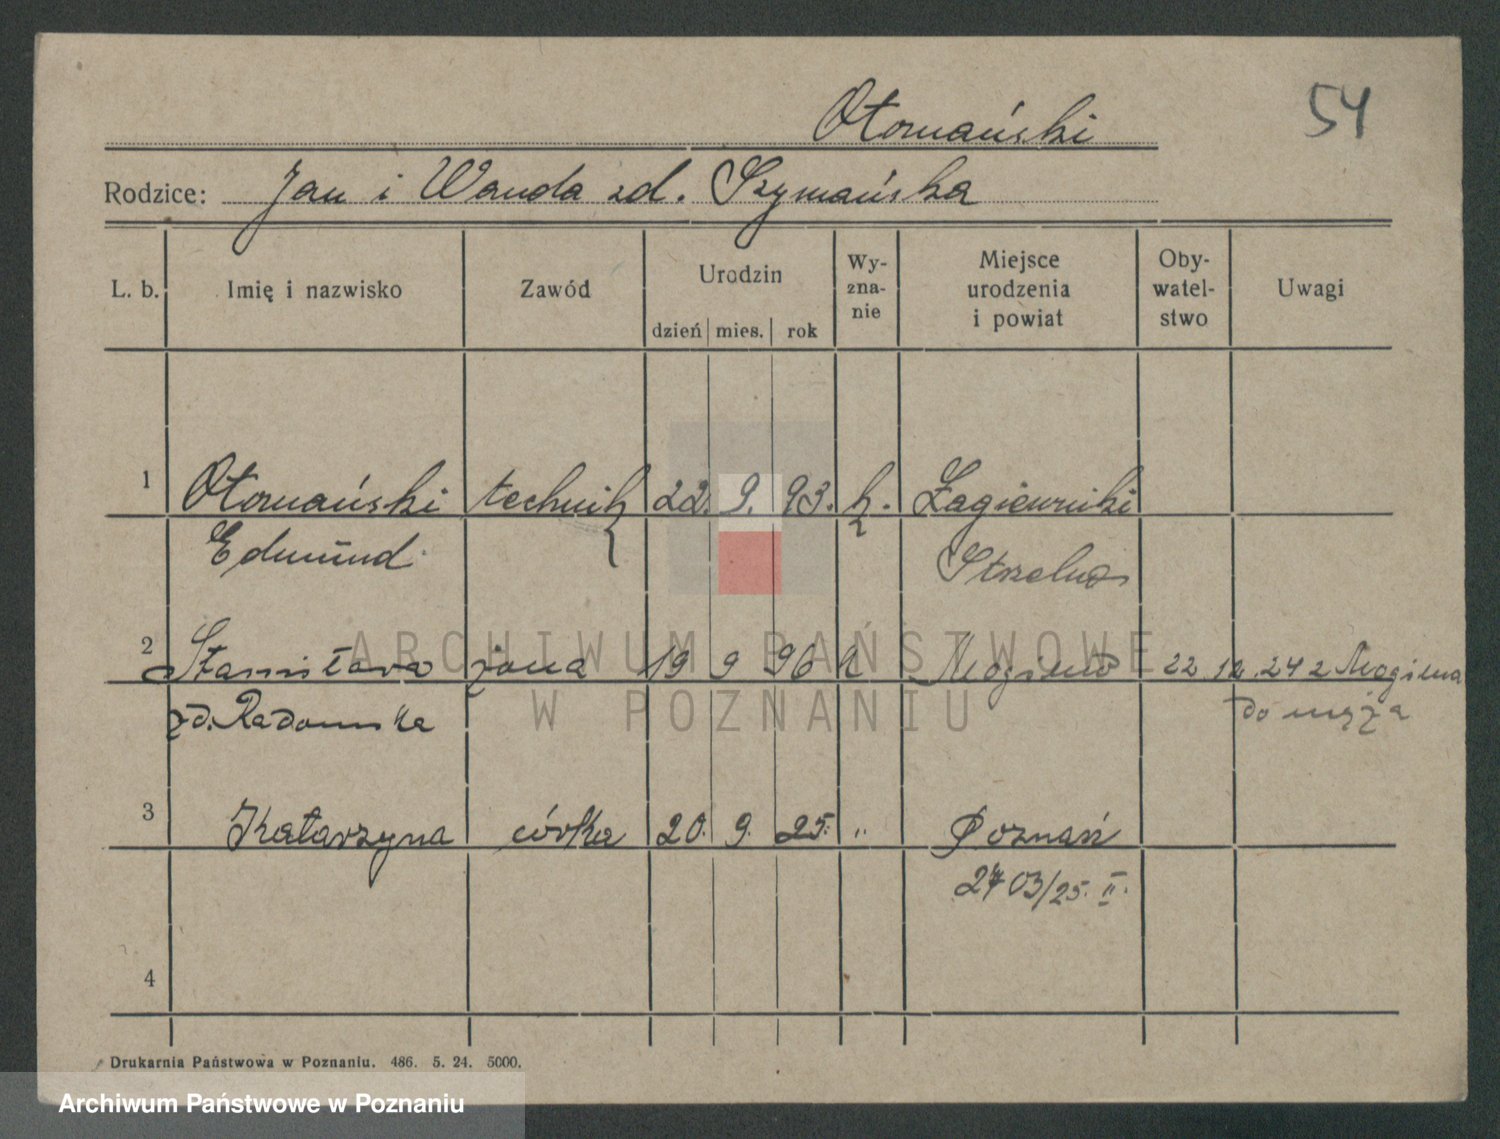 54
Otomański
Rodzice: Jan i Wanda zd. Szymańska
L. b. Imię i nazwisko Zawód Urodzin dzień mies. rok Wy-zna-nie Miejsce urodzenia i powiat Oby-watel-stwo Uwagi
1 Otomański technik 22. 9. 93. k. Łagiewniki
Edmund Strzelno
2 Stanisława żona 19 9 96 k Mogilno 22.12.24 z Mogilna
zd. Radomska do męża
3 Katarzyna córka 20. 9. 25. " Poznań
2703/25. II.
4
ARCHIWUM PAŃSTWOWE
W POZNANIU
Drukarnia Państwowa w Poznaniu. 486. 5. 24. 5000.
Archiwum Państwowe w Poznaniu